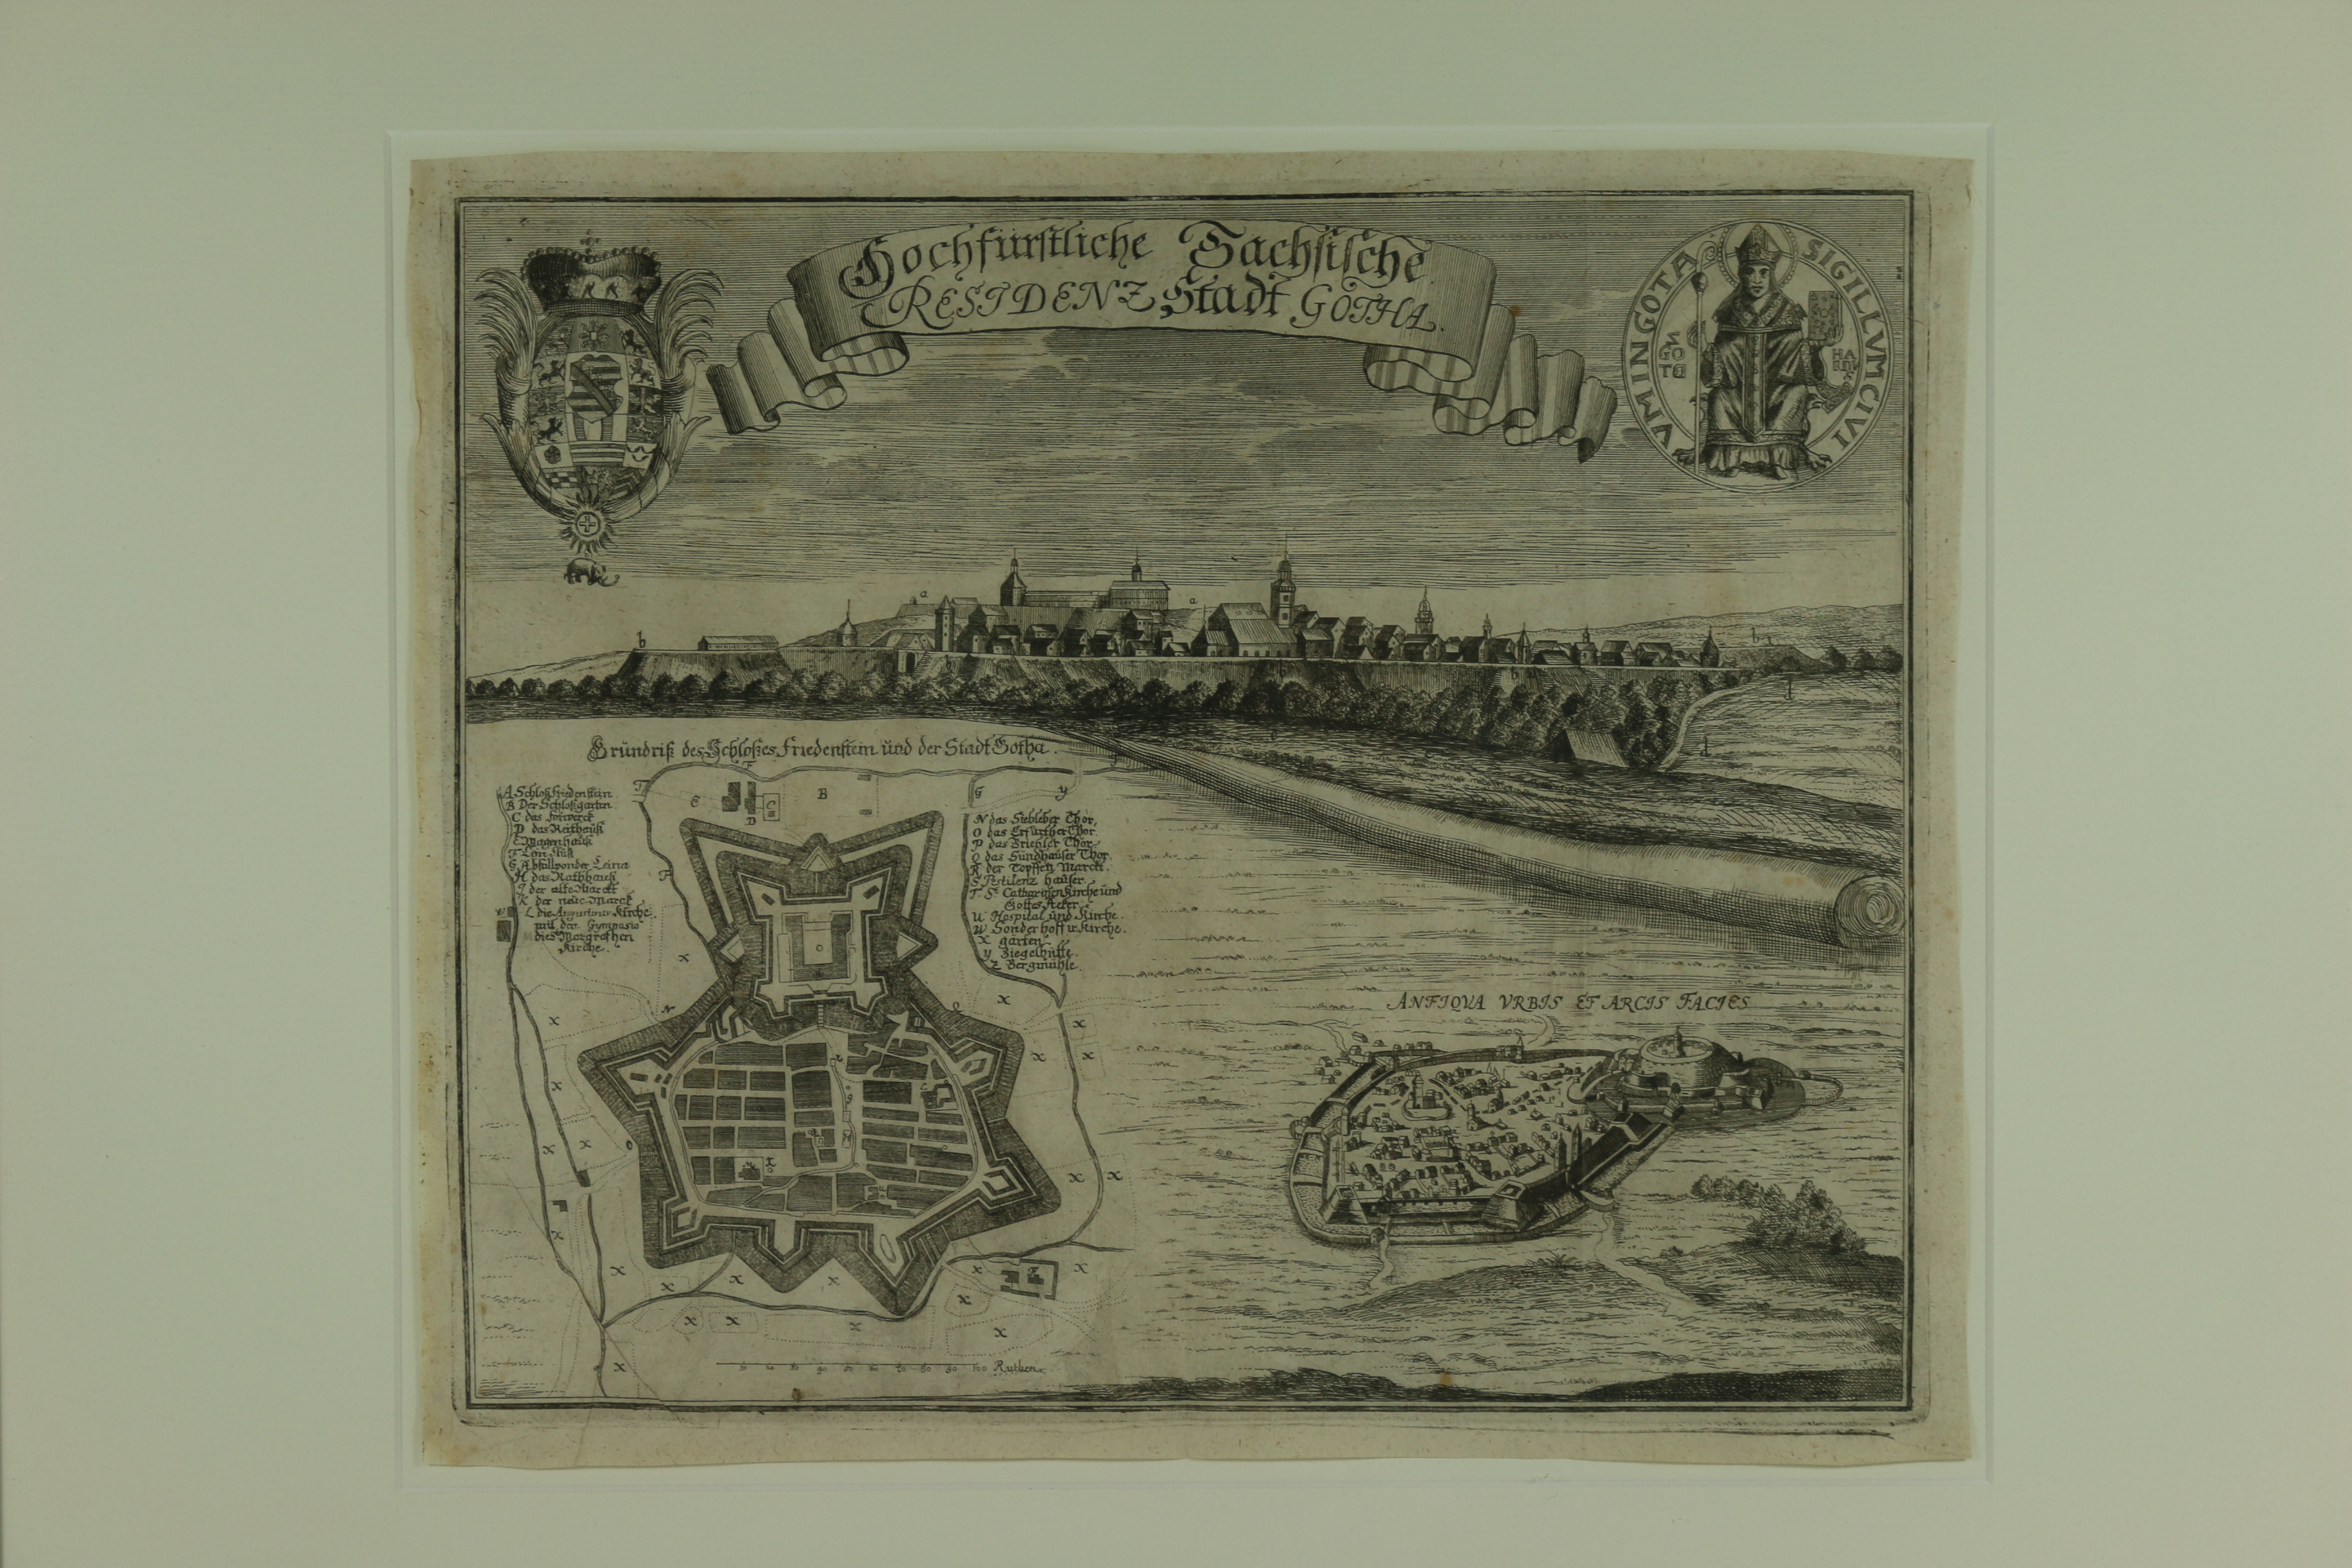 Hochfürstliche Sächsische
RESIDENZ Stadt GOTHA.
SIGILLVM CIVIVM IN GOTA
GOTE
HARDVS
a
a
b
b
b
b
d
d
Grundriß des Schloßes Friedenstein und der Stadt Gotha.
A Schloß Friedenstein
B Der Schloßgarten
C das Forwerck
D das Reithauß
E Wagenhauß
F Lein fluß
G Abfall von der Leina
H das Rathhauß
I der alte Marckt
K der neue Marck
L die Augustiner Kirche
mit dem Gymnasio
M die Margrethen
Kirche.
N das Siebleber Thor,
O das Erfurther Thor.
P das Briehler Thor
Q das Sundhauser Thor.
R der Topffen Marckt.
S Pestilenz hauser.
T St Catharinen Kirche und
Gottes Acker.
U Hospital und Kirche.
W Sonderhoff u. Kirche.
X garten
Y Ziegelhütte.
Z Bergmühle.
ANTIQVA VRBIS ET ARCIS FACIES
100 Ruthen